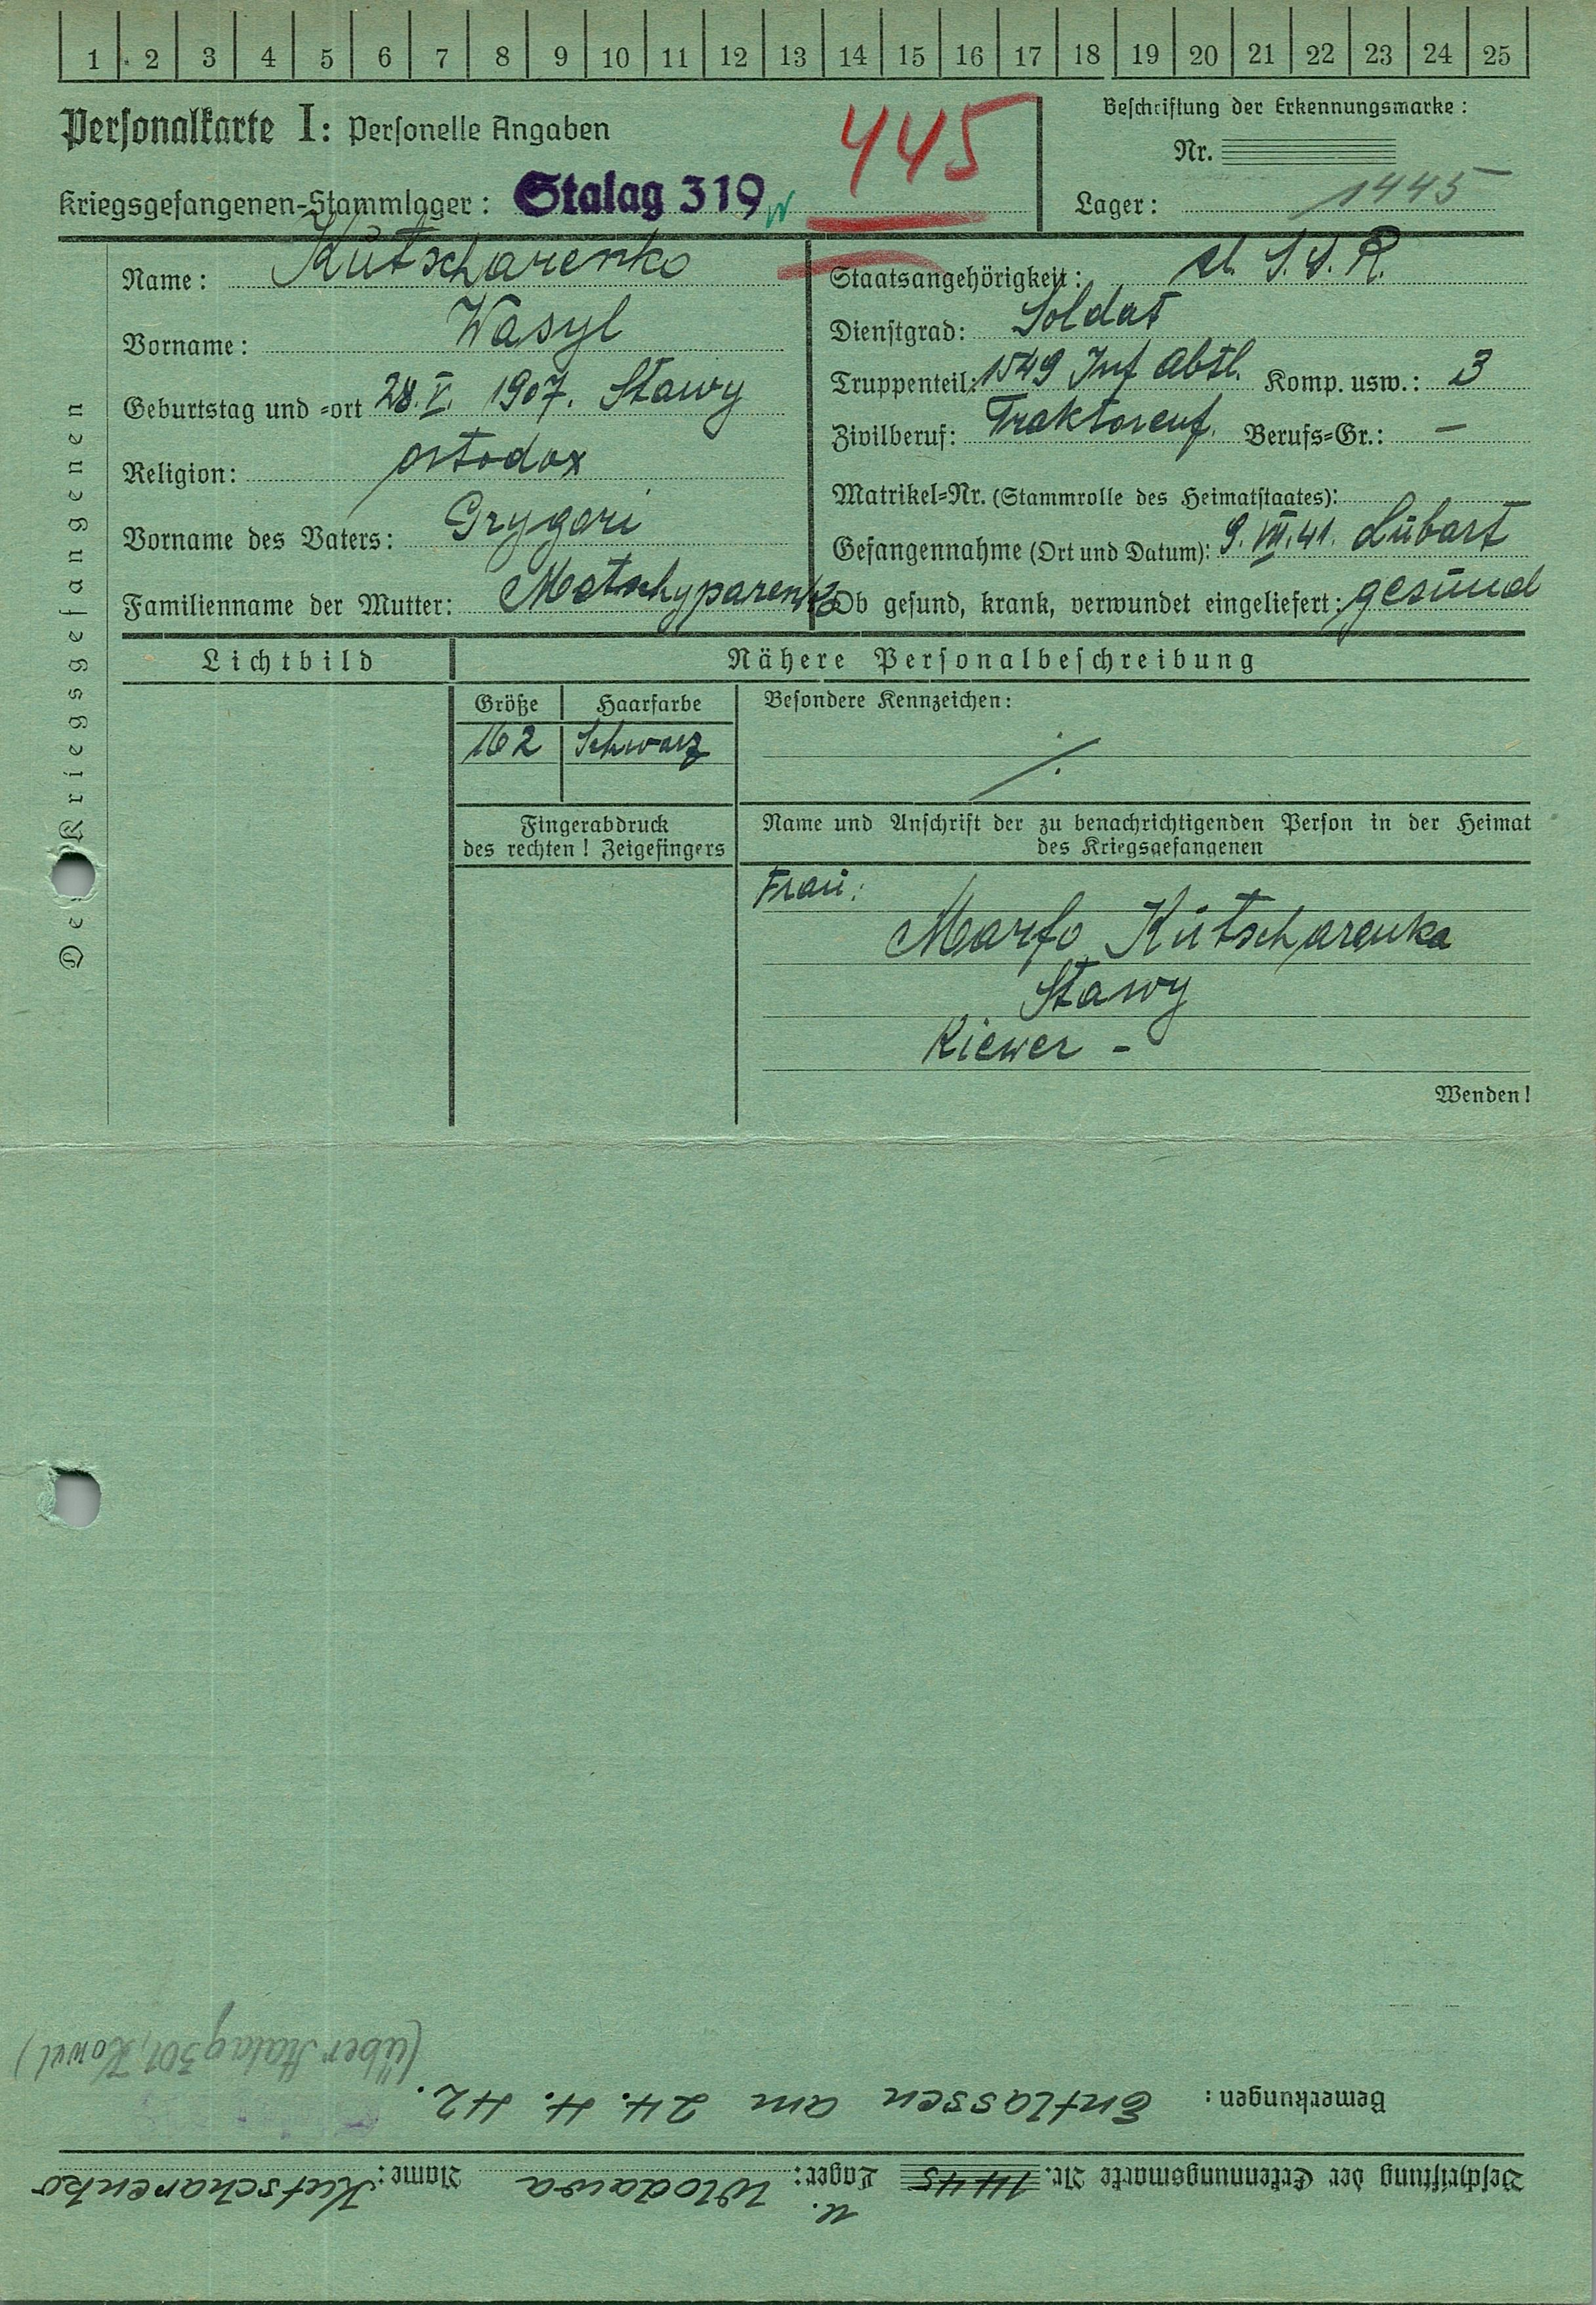 1 2 3 4 5 6 7 8 9 10 11 12 13 14 15 16 17 18 19 20 21 22 23 24 25
Personalkarte I: Personelle Angaben
445
Beschriftung der Erkennungsmarke:
Nr.
Kriegsgefangenen-Stammlager: Stalag 319
Lager: 1445
Des Kriegsgefangenen
Name: Kutscharenko
Staatsangehörigkeit: U. S. S. R.
Vorname: Wasyl
Dienstgrad: Soldat
Geburtstag und -ort 28. V. 1907. Stawy
Truppenteil: 1549 Inf Abtl. Komp. usw.: 3
Religion: ortodox
Zivilberuf: Traktoreuf. Berufs-Gr.: –
Matrikel-Nr. (Stammrolle des Heimatstaates):
Vorname des Vaters: Grygori
Gefangennahme (Ort und Datum): 9. VII. 41. Lubart
Familienname der Mutter: Motschyparenko
Ob gesund, krank, verwundet eingeliefert: gesund
Lichtbild
Nähere Personalbeschreibung
Größe Haarfarbe
Besondere Kennzeichen:
162 Schwarz
./.
Fingerabdruck
des rechten! Zeigefingers
Name und Anschrift der zu benachrichtigenden Person in der Heimat
des Kriegsgefangenen
Frau:
Marfo Kutscharenka
Stawy
Kiewer -
Wenden!
Beschriftung der Erkennungsmarke Nr. 1445 Lager: Wlodawa Name: Kutscharenko
Bemerkungen: Entlassen am 24. 4. 42.
(über Stalag 301, Kowel)